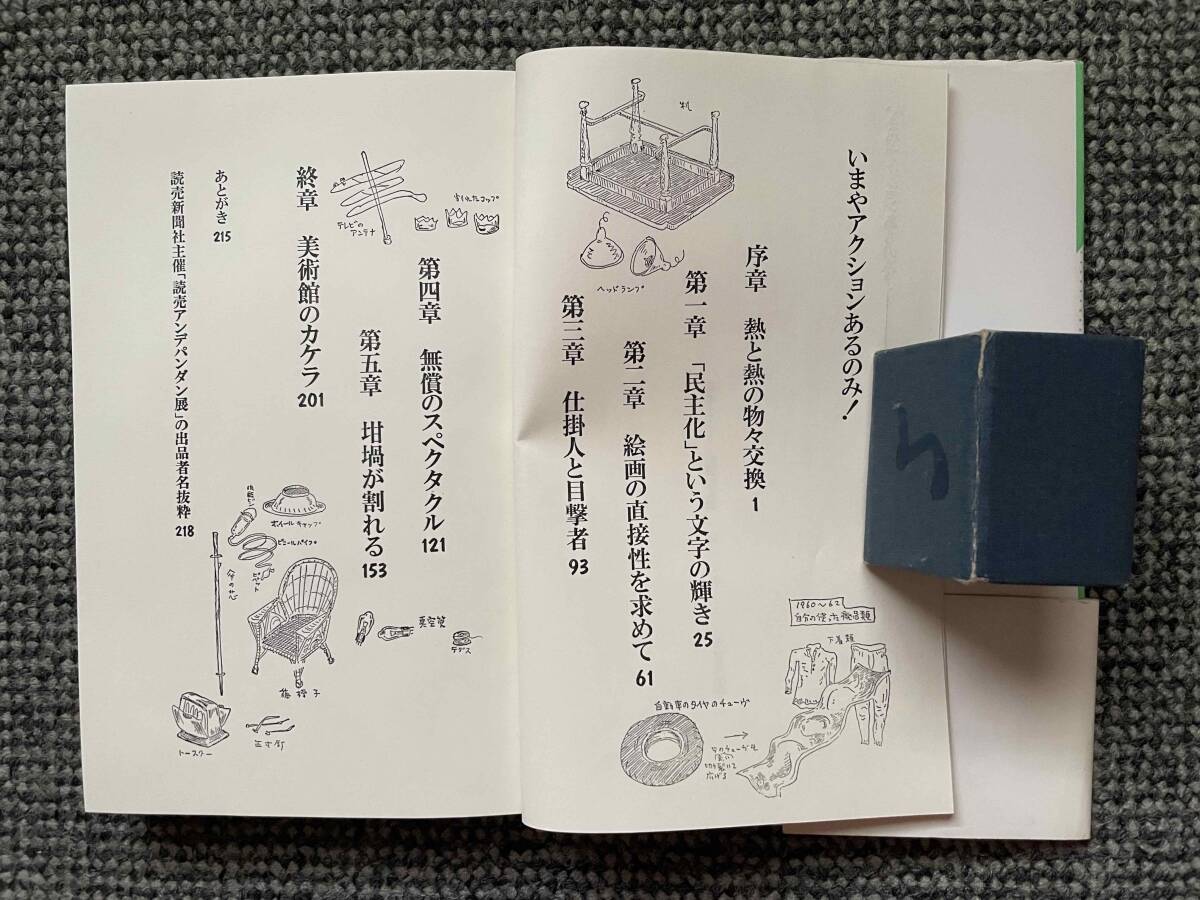 いまやアクションあるのみ!
序章　熱と熱の物々交換 1
第一章　「民主化」という文字の輝き 25
第二章　絵画の直接性を求めて 61
第三章　仕掛人と目撃者 93
机
ヘッドランプ
1960〜62
自分の使った廃品類
下着類
自動車のタイヤのチューヴ
第四章　無償のスペクタクル 121
第五章　坩堝が割れる 153
終章　美術館のカケラ 201
あとがき 215
読売新聞社主催「読売アンデパンダン展」の出品者名抜粋 218
割れたコップ
テレビのアンテナ
ホイールキャップ
ビニールパイプ
真空管
籐椅子
トースター
五寸釘